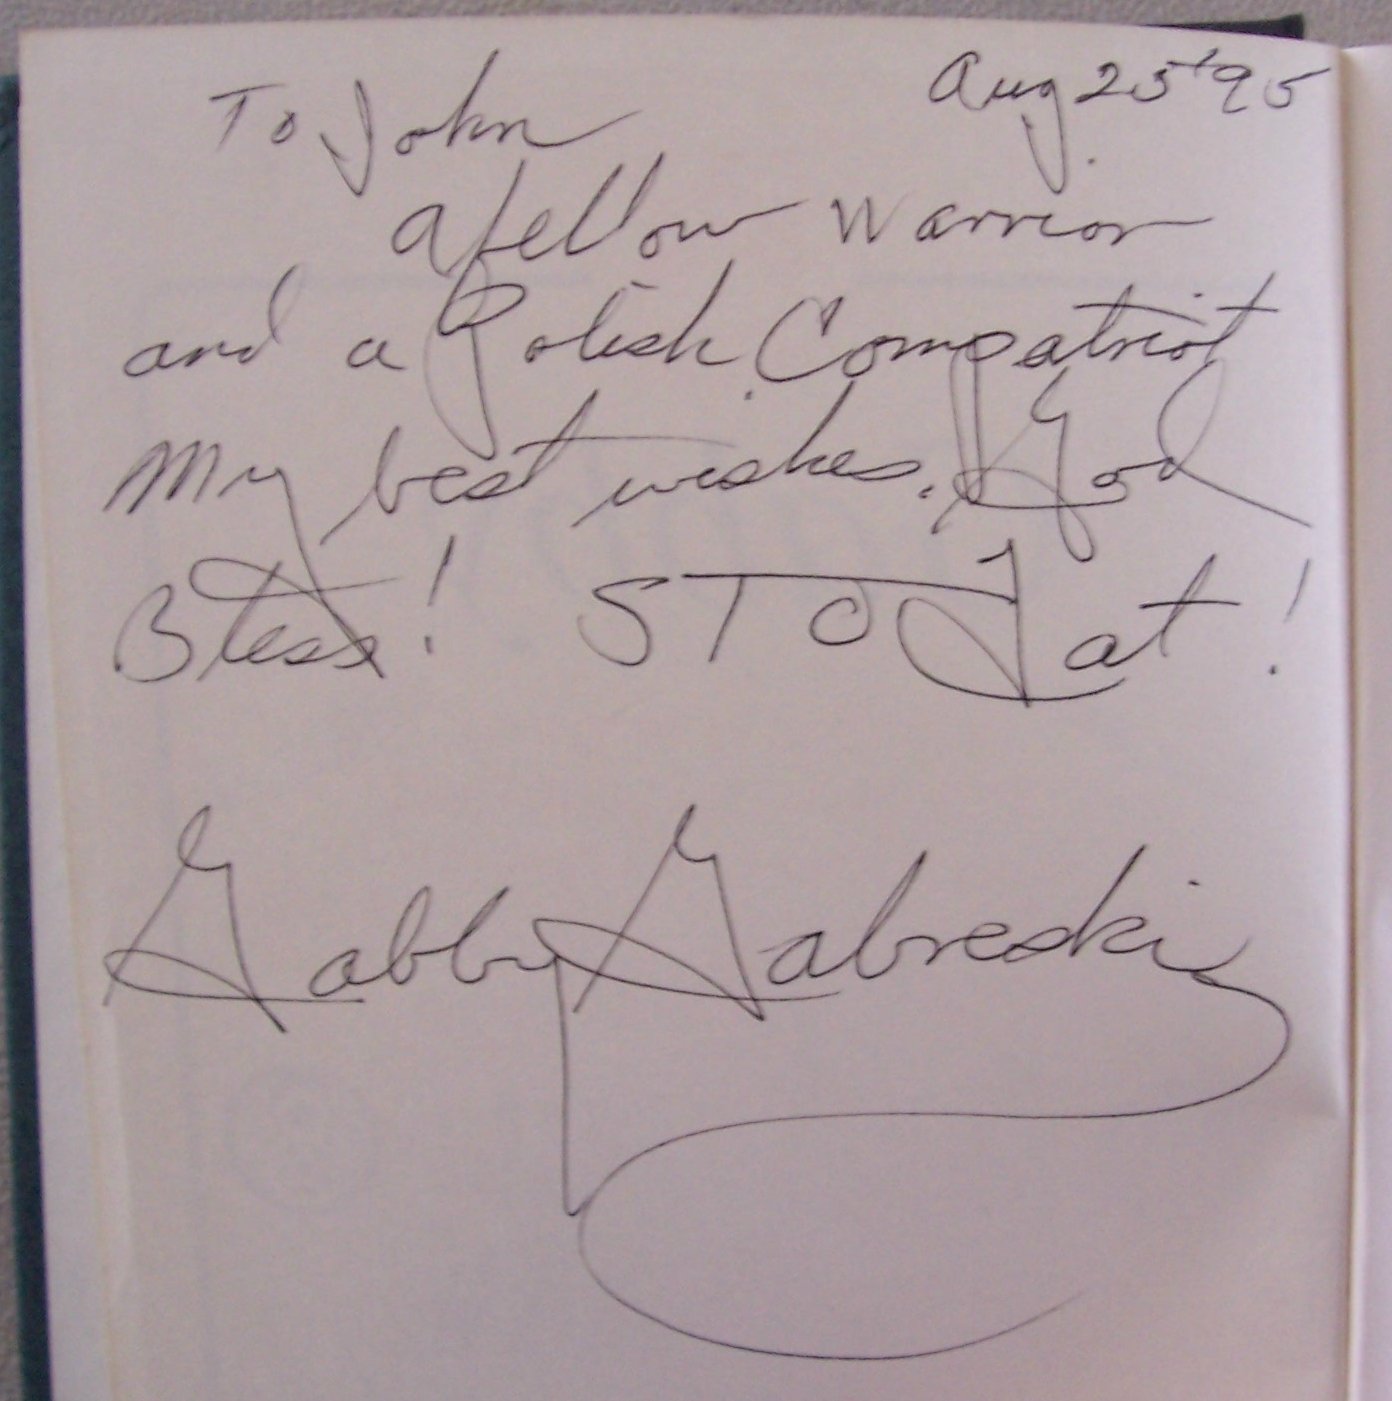 Aug 25 '95
To John
a fellow Warrior
and a Polish Compatriot
My best wishes. God
Bless! STO Lat!
Gabby Gabreski